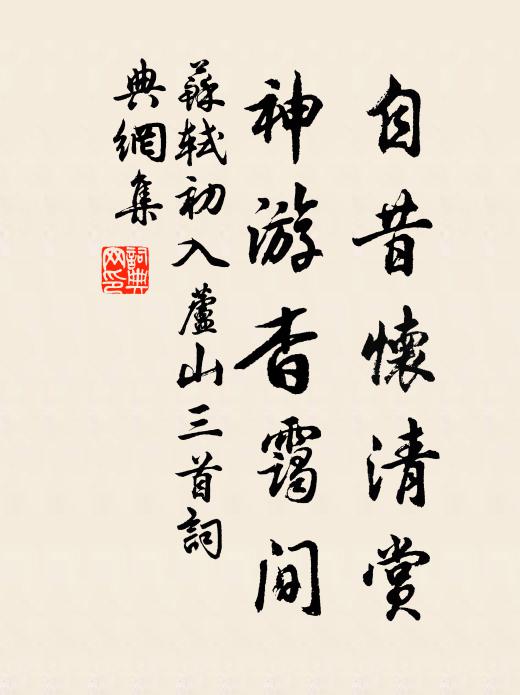 自昔懷清賞
神游杳靄間
蘇軾初入蘆山三首詞
典網集
詞典
网印